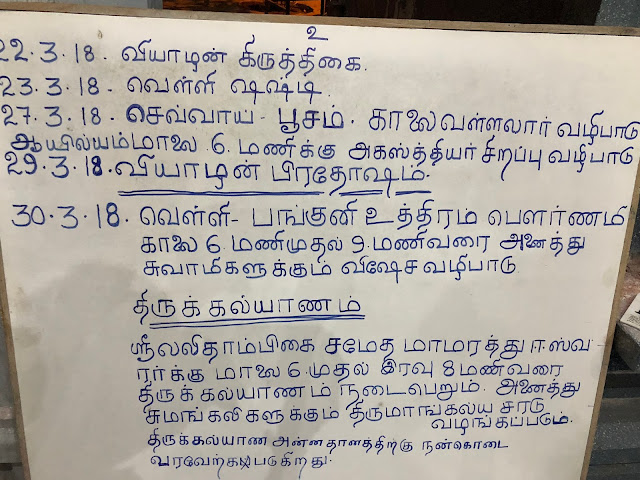 உ
22.3.18. வியாழன் கிருத்திகை.
23.3.18. வெள்ளி ஷஷ்டி.
27.3.18. செவ்வாய - பூசம். காலை வள்ளலார் வழிபாடு
ஆயில்யம் மாலை 6. மணிக்கு அகஸ்த்தியர் சிறப்பு வழிபாடு
29.3.18. வியாழன் பிரதோஷம்.
30.3.18. வெள்ளி - பங்குனி உத்திரம் பௌர்ணமி
காலை 6 மணிமுதல் 9 மணிவரை அனைத்து
சுவாமிகளுக்கும் விஷேச வழிபாடு
திருக்கல்யாணம்
ஸ்ரீலலிதாம்பிகை சமேத மாமரத்து ஈஸ்வ-
ரர்க்கு மாலை 6 முதல் இரவு 8 மணிவரை
திருக்கல்யாணம் நடைபெறும். அனைத்து
சுமங்கலிகளுக்கும் திருமாங்கல்ய சரடு
வழங்கப்படும்.
திருக்கல்யாண அன்னதானத்திற்கு நன்கொடை
வரவேற்கபடுகிறது.